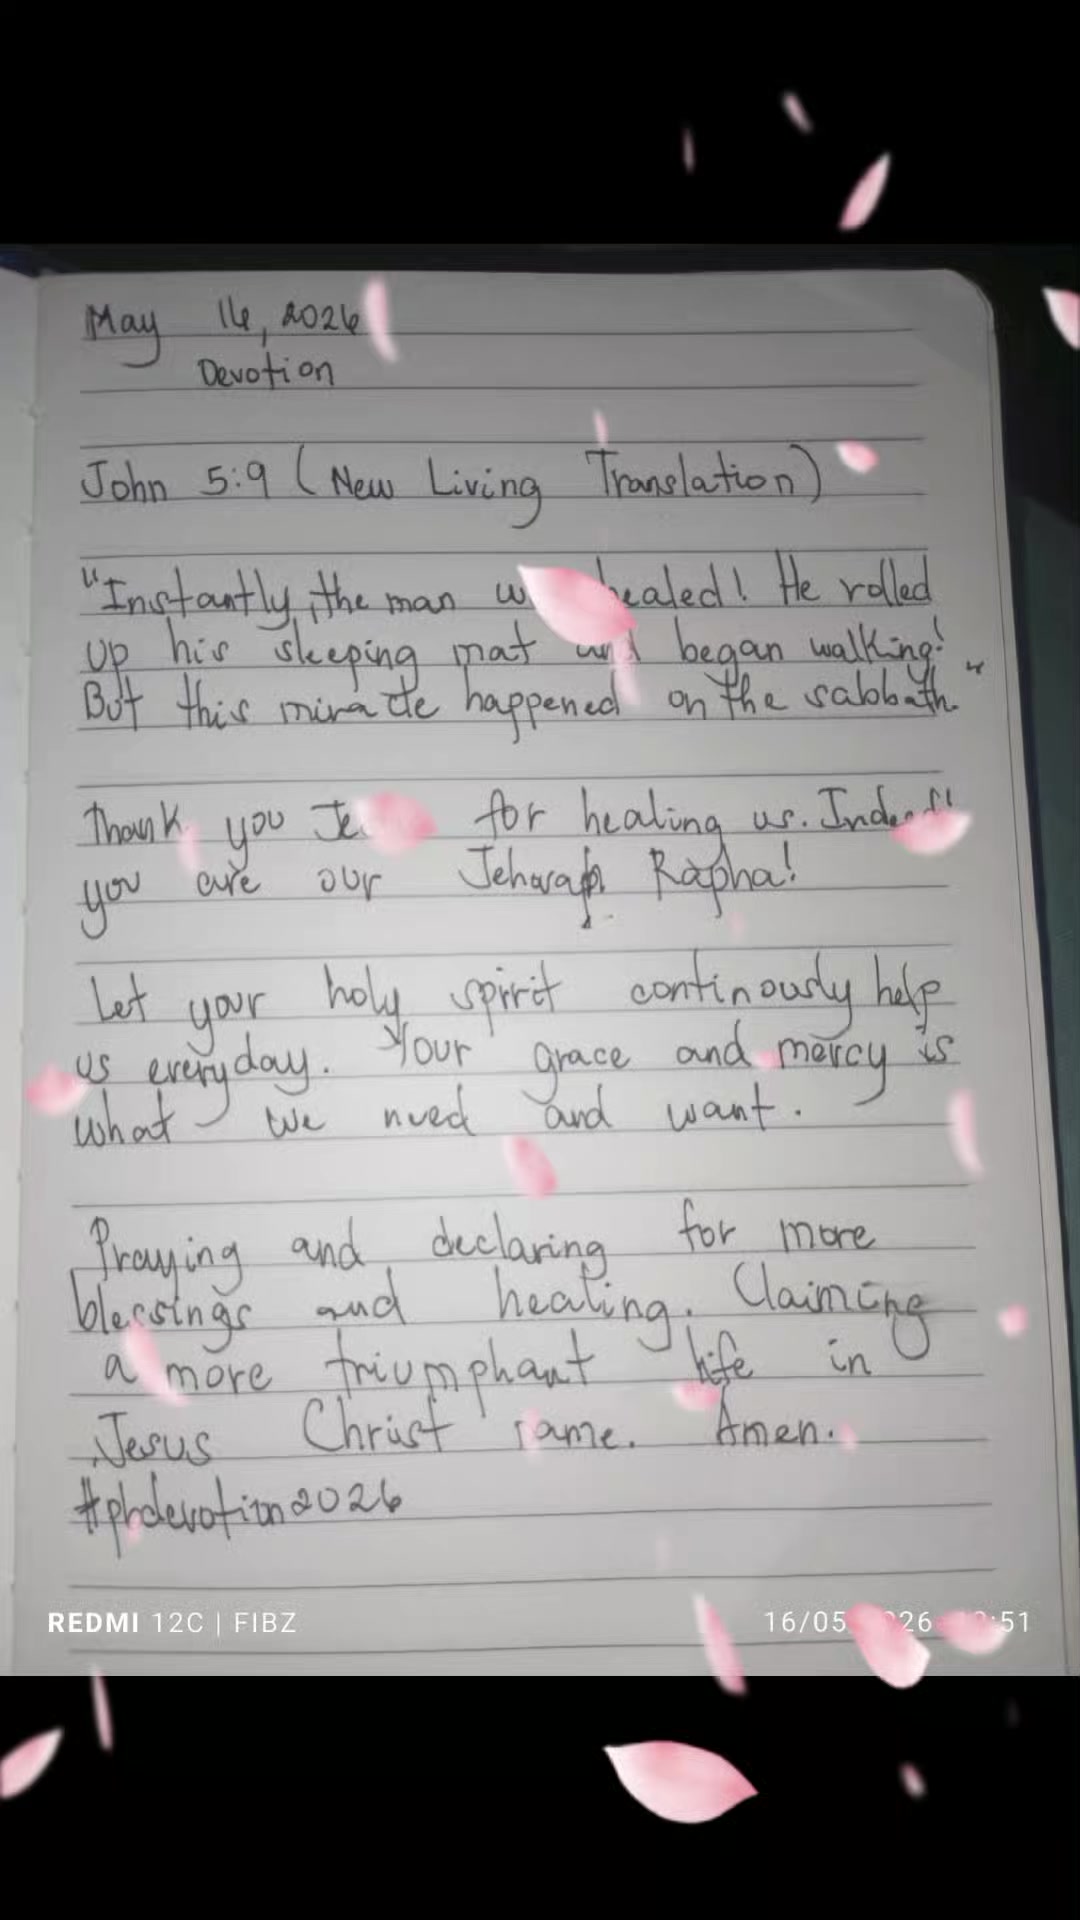 May 16, 2026
Devotion
John 5:9 (New Living Translation)
"Instantly, the man healed! He rolled
up his sleeping mat and began walking!
But this miracle happened on the sabbath."
Thank you for healing us. Indeed
you are our Jehovah Rapha!
Let your holy spirit continously help
us everyday. Your grace and mercy is
what we need and want.
Praying and declaring for more
blessings and healing. Claiming
a more triumphant life in
Jesus Christ name. Amen.
#pbdevotion2026
REDMI 12C | FIBZ
16/05